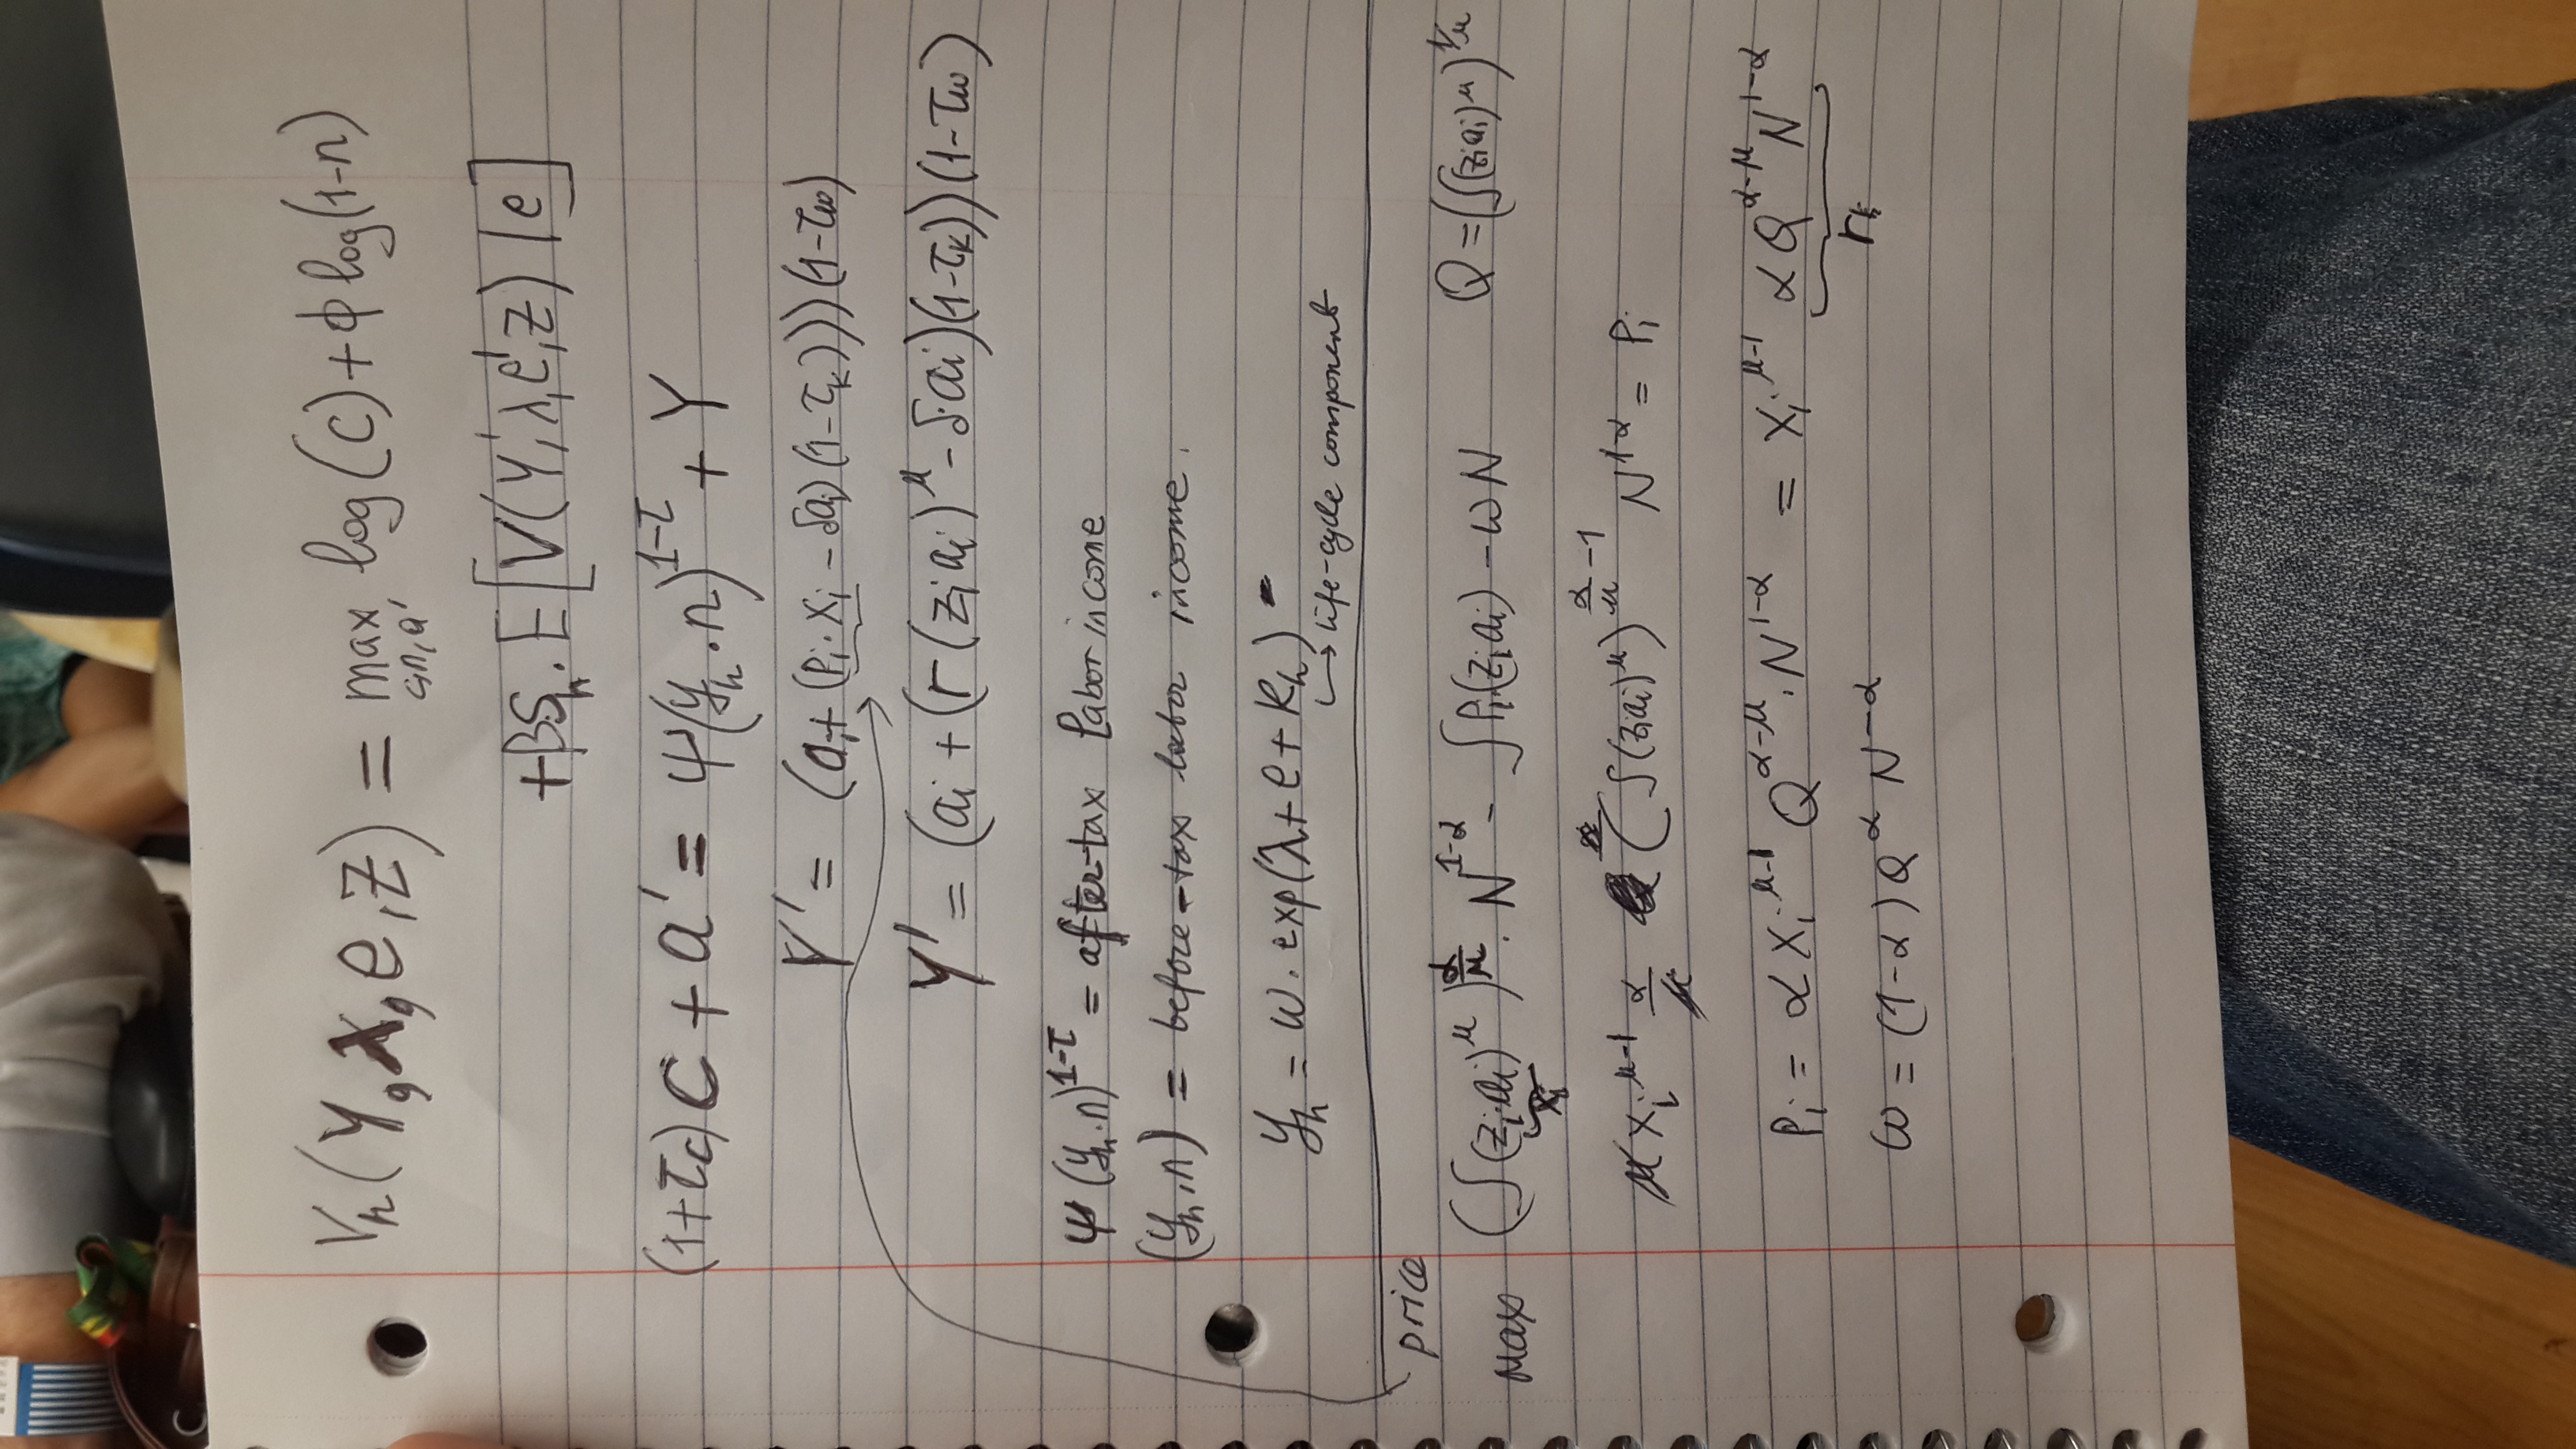 V_h(Y, λ, e, z) = max log(c) + ϕ log(1-n)
c, n, a'
+βS_h · E[V(Y', λ, e', z) | e]
(1+τ_c) C + a' = ψ(y_h · n)^{1-τ} + Y
Y' = (a_i + (p_i · x_i - δa_i)(1-τ_k)))(1-τ_w)
Y' = (a_i + (r(z_i a_i)^μ - δ·a_i)(1-τ_k))(1-τ_w)
ψ(y_h · n)^{1-τ} = after-tax labor income
(y_h · n) = before-tax labor income.
y_h = w · exp(λ + e + κ_h) -
→ life-cycle component
price
max (∫(z_i · a_i)^μ)^{α/μ} · N^{1-α} - ∫P_i(z_i a_i) - wN Q = (∫(z_i a_i)^μ)^{1/μ}
x_i
μ x_i^{μ-1} α/μ (∫(z_i a_i)^μ)^{α/μ - 1} N^{1-α} = P_i
P_i = α x_i^{μ-1} Q^{α-μ} · N^{1-α} = x_i^{μ-1} α Q^{α-μ} N^{1-α}
w = (1-α) Q^α N^{-α}